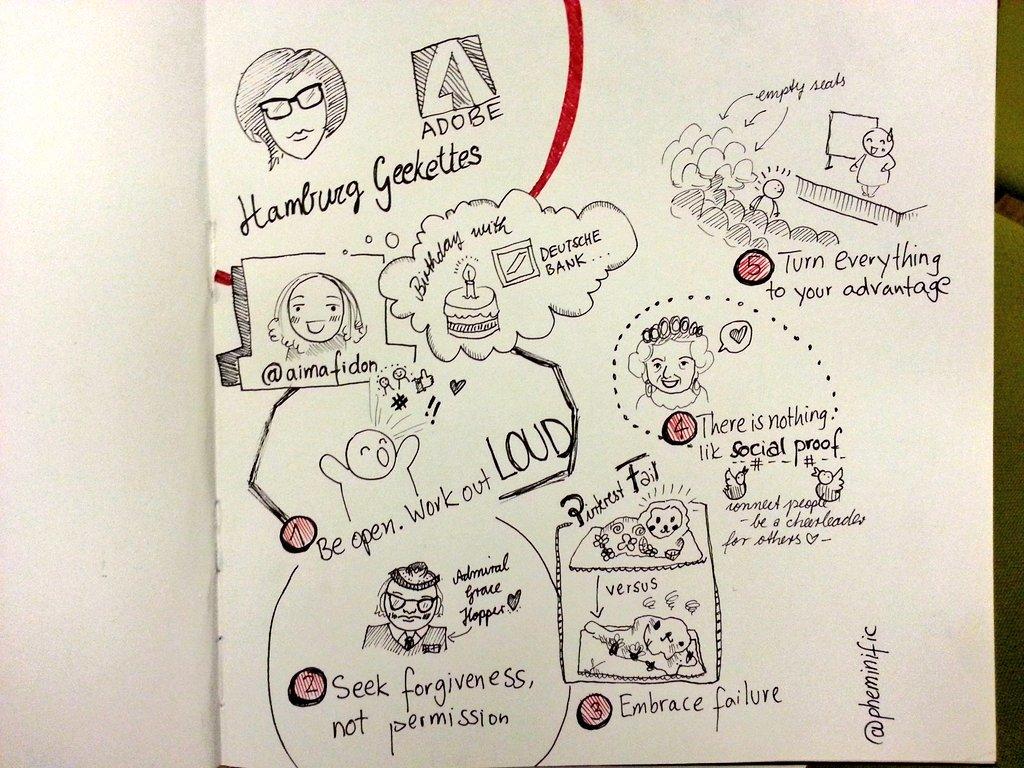 ADOBE
Hamburg Geekettes
@aimafidon
Birthday with
DEUTSCHE
BANK...
#
!!
1 Be open. Work out LOUD
Admiral
Grace
Hopper
2 Seek forgiveness,
not permission
Pinterest Fail
versus
3 Embrace failure
4 There is nothing
lik social proof
# #
connect people
- be a cheerleader
for others ♡ -
empty seats
5 Turn everything
to your advantage
@pheminific